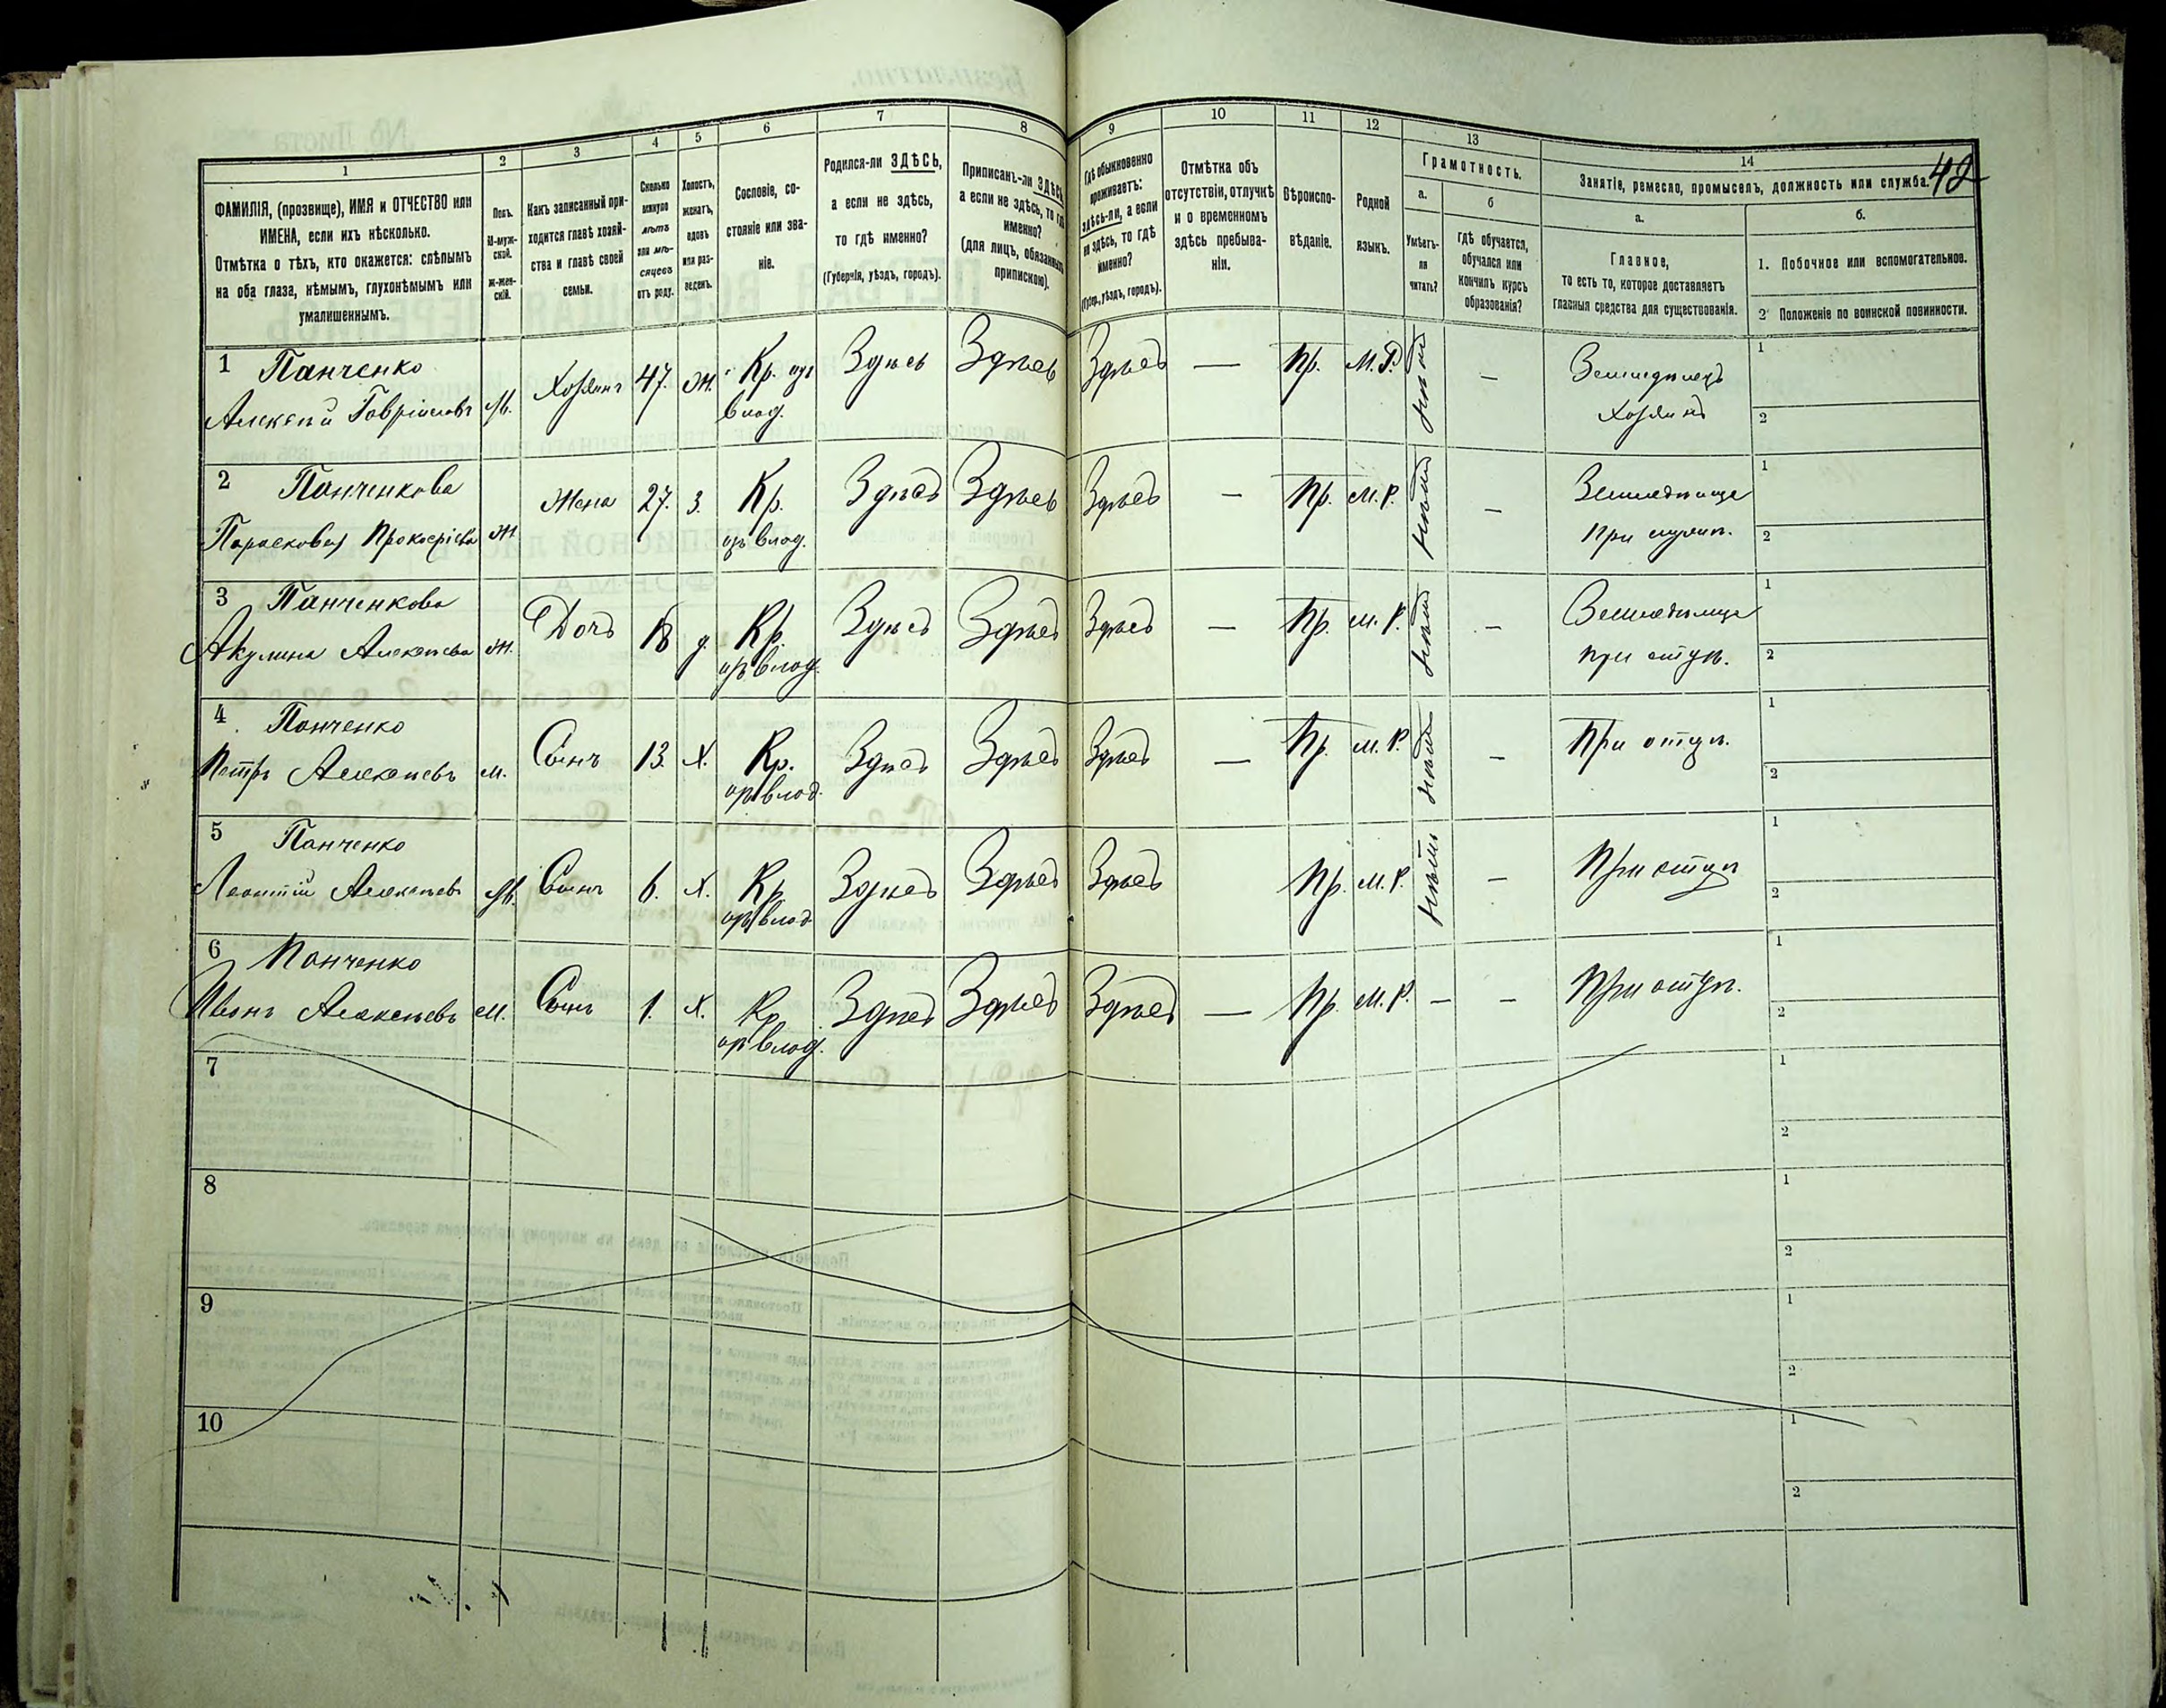 42
1 2 3 4 5 6 7 8 9 10 11 12 13 14
ФАМИЛІЯ, (прозвище), ИМЯ и ОТЧЕСТВО или
ИМЕНА, если ихъ нѣсколько.
Отмѣтка о тѣхъ, кто окажется: слѣпымъ
на оба глаза, нѣмымъ, глухонѣмымъ или
умалишеннымъ.
Полъ.
М-муж-
ской.
Ж-жен-
скій.
Какъ записанный при-
ходится главѣ хозяй-
ства и главѣ своей
семьи.
Сколько
минуло
лѣтъ
или мѣ-
сяцевъ
отъ роду.
Холостъ,
женатъ,
вдовъ
или раз-
веденъ.
Сословіе, со-
стояніе или зва-
ніе.
Родился-ли ЗДѢСЬ,
а если не здѣсь,
то гдѣ именно?
(Губернія, уѣздъ, городъ).
Приписанъ-ли ЗДѢСЬ,
а если не здѣсь, то гдѣ
именно?
(для лицъ, обязанныхъ
припискою).
Гдѣ обыкновенно
проживаетъ:
ЗДѢСЬ-ли, а если
не здѣсь, то гдѣ
именно?
(Губер., уѣздъ, городъ).
Отмѣтка объ
отсутствіи, отлучкѣ
и о временномъ
здѣсь пребыва-
ніи.
Вѣроиспо-
вѣданіе.
Родной
языкъ.
Грамотность.
а.
Умѣетъ-
ли
читать?
б
гдѣ обучается,
обучался или
кончилъ курсъ
образованія?
Занятіе, ремесло, промыселъ, должность или служба.
а.
Главное,
то есть то, которое доставляетъ
главныя средства для существованія.
б.
1. Побочное или вспомогательное.
2 Положеніе по воинской повинности.
1 Панченко
Алексѣй Гавріиловъ М. Хозяинъ 47. Ж. Кр. Здѣсь Здѣсь Здѣсь — Пр. М.Р. нѣтъ — Земледѣлецъ
влад. Хозяинъ
1
2
2 Панченкова
Параскова Прокофіева Ж Жена 27. З. Кр. Здѣсь Здѣсь Здѣсь — Пр. М.Р. нѣтъ —
влад. При
1
2
3 Панченкова
Акулина Алексѣева Ж. Дочь 18 д. Кр. Здѣсь Здѣсь Здѣсь — Пр. М.Р. нѣтъ —
влад. при отцѣ.
1
2
4 Панченко
Петръ Алексѣевъ М. Сынъ 13. Х. Кр. Здѣсь Здѣсь Здѣсь — Пр. М.Р. нѣтъ — При отцѣ.
влад.
1
2
5 Панченко
Леонтій Алексѣевъ М. Сынъ 6. Х. Кр. Здѣсь Здѣсь Здѣсь Пр. М.Р. нѣтъ — При отцѣ
влад.
1
2
6 Панченко
Иванъ Алексѣевъ М. Сынъ 1. Х. Кр. Здѣсь Здѣсь Здѣсь — Пр. М.Р. — — При отцѣ.
влад.
1
2
7
1
2
8
1
2
9
1
2
10
1
2